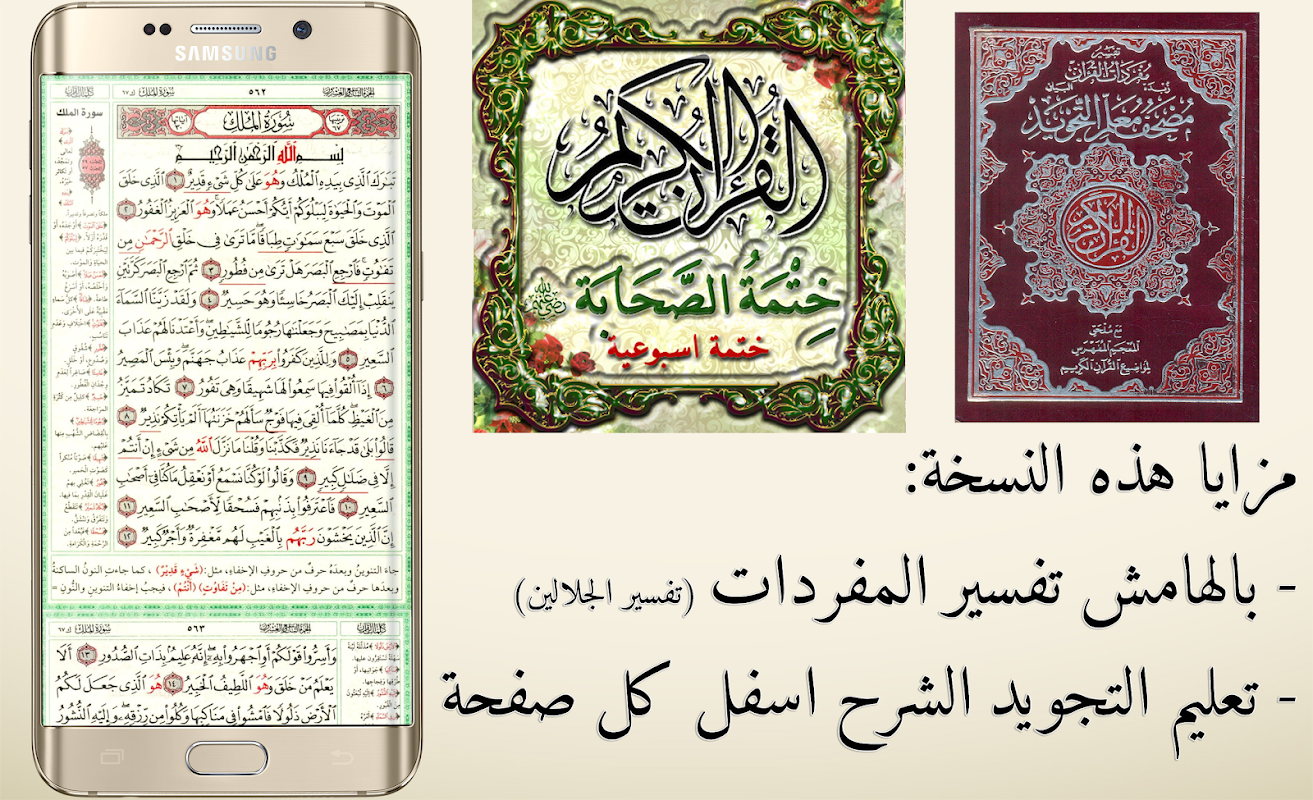 SAMSUNG
سورة الملك
٥٦٢
سُورَةُ المُلْكِ
بِسْمِ اللَّهِ الرَّحْمَٰنِ الرَّحِيمِ
تَبَارَكَ الَّذِي بِيَدِهِ الْمُلْكُ وَهُوَ عَلَىٰ كُلِّ شَيْءٍ قَدِيرٌ ١ الَّذِي خَلَقَ
الْمَوْتَ وَالْحَيَاةَ لِيَبْلُوَكُمْ أَيُّكُمْ أَحْسَنُ عَمَلًا وَهُوَ الْعَزِيزُ الْغَفُورُ ٢
الَّذِي خَلَقَ سَبْعَ سَمَاوَاتٍ طِبَاقًا مَّا تَرَىٰ فِي خَلْقِ الرَّحْمَٰنِ مِن
تَفَاوُتٍ فَارْجِعِ الْبَصَرَ هَلْ تَرَىٰ مِن فُطُورٍ ٣ ثُمَّ ارْجِعِ الْبَصَرَ كَرَّتَيْنِ
يَنقَلِبْ إِلَيْكَ الْبَصَرُ خَاسِئًا وَهُوَ حَسِيرٌ ٤ وَلَقَدْ زَيَّنَّا السَّمَاءَ
الدُّنْيَا بِمَصَابِيحَ وَجَعَلْنَاهَا رُجُومًا لِّلشَّيَاطِينِ وَأَعْتَدْنَا لَهُمْ عَذَابَ
السَّعِيرِ ٥ وَلِلَّذِينَ كَفَرُوا بِرَبِّهِمْ عَذَابُ جَهَنَّمَ وَبِئْسَ الْمَصِيرُ
٦ إِذَا أُلْقُوا فِيهَا سَمِعُوا لَهَا شَهِيقًا وَهِيَ تَفُورُ ٧ تَكَادُ تَمَيَّزُ
مِنَ الْغَيْظِ كُلَّمَا أُلْقِيَ فِيهَا فَوْجٌ سَأَلَهُمْ خَزَنَتُهَا أَلَمْ يَأْتِكُمْ نَذِيرٌ ٨
قَالُوا بَلَىٰ قَدْ جَاءَنَا نَذِيرٌ فَكَذَّبْنَا وَقُلْنَا مَا نَزَّلَ اللَّهُ مِن شَيْءٍ إِنْ أَنتُمْ
إِلَّا فِي ضَلَالٍ كَبِيرٍ ٩ وَقَالُوا لَوْ كُنَّا نَسْمَعُ أَوْ نَعْقِلُ مَا كُنَّا فِي أَصْحَابِ
السَّعِيرِ ١٠ فَاعْتَرَفُوا بِذَنبِهِمْ فَسُحْقًا لِّأَصْحَابِ السَّعِيرِ ١١
إِنَّ الَّذِينَ يَخْشَوْنَ رَبَّهُم بِالْغَيْبِ لَهُم مَّغْفِرَةٌ وَأَجْرٌ كَبِيرٌ ١٢
جاءَ التنوينُ وبعدَهُ حرفٌ من حروفِ الإخفاءِ، مثل: (شَيْءٍ قَدِيرٌ) ، كما جاءتِ النونُ الساكنةُ
وبعدَها حرفٌ من حروفِ الإخفاءِ، مثل: (مِنْ تَفَاوُتٍ) (أَنْتُمْ) ، فيجبُ إخفاءُ التنوينِ والنُّونِ =
٥٦٣
وَأَسِرُّوا قَوْلَكُمْ أَوِ اجْهَرُوا بِهِ إِنَّهُ عَلِيمٌ بِذَاتِ الصُّدُورِ ١٣ أَلَا
يَعْلَمُ مَنْ خَلَقَ وَهُوَ اللَّطِيفُ الْخَبِيرُ ١٤ هُوَ الَّذِي جَعَلَ لَكُمُ
الْأَرْضَ ذَلُولًا فَامْشُوا فِي مَنَاكِبِهَا وَكُلُوا مِن رِّزْقِهِ وَإِلَيْهِ النُّشُورُ
القرآن الكريم
خِتْمَةُ الصَّحَابَة
ختمة اسبوعية
تفسير
مفردات القرآن
زبدة البيان
مصحف معلم التجويد
القرآن الكريم
مع ملحق
المعجم المفهرس
لمواضيع القرآن الكريم
مزايا هذه النسخة:
- بالهامش تفسير المفردات (تفسير الجلالين)
- تعليم التجويد الشرح اسفل كل صفحة